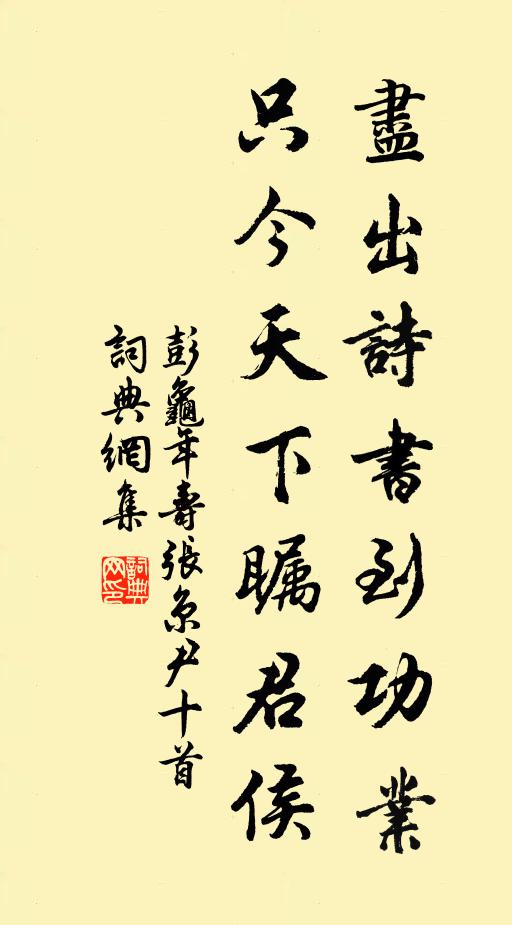 盡出詩書到功業
只今天下瞩君侯
彭龜年壽張京尹十首
詞典網集
詞典
网印